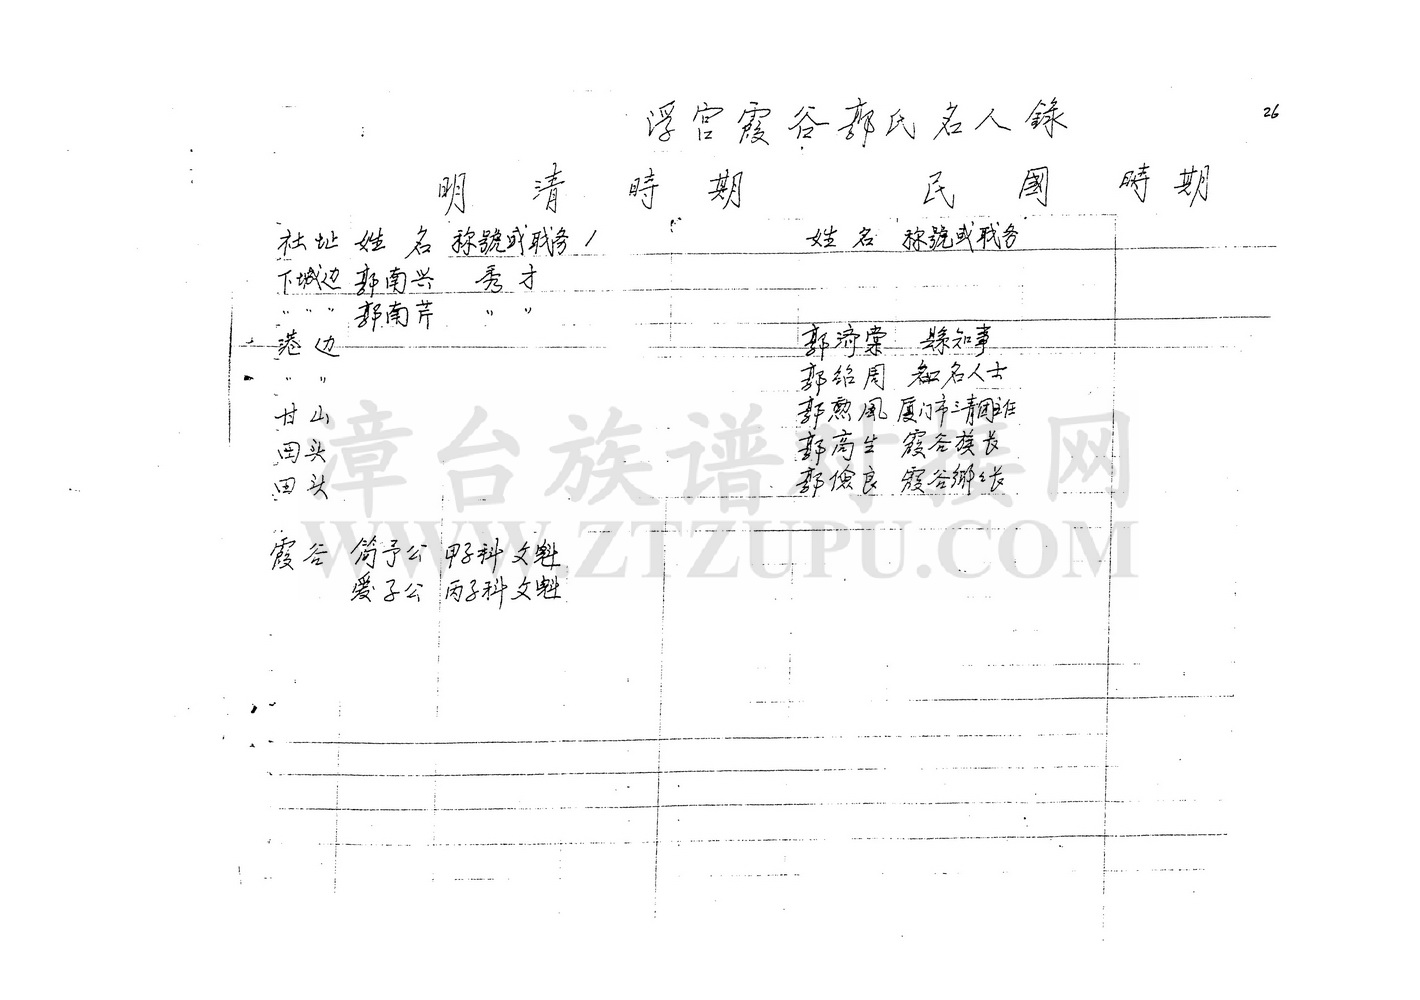 26
浮宫霞谷郭氏名人錄
明清時期 民國時期
社址 姓名 称號或职务 姓名 称號或职务
下城边 郭南兴 秀才
〃〃〃 郭南芹 〃〃
港边 郭濟棠 縣知事
〃〃 郭绍周 知名人士
甘山 郭勲風 厦门市三青团主任
田头 郭高生 霞谷族长
田头 郭儉良 霞谷鄉长
霞谷 简予公 甲子科文魁
爱子公 丙子科文魁
漳台族谱对接网
WWW.ZTZUPU.COM